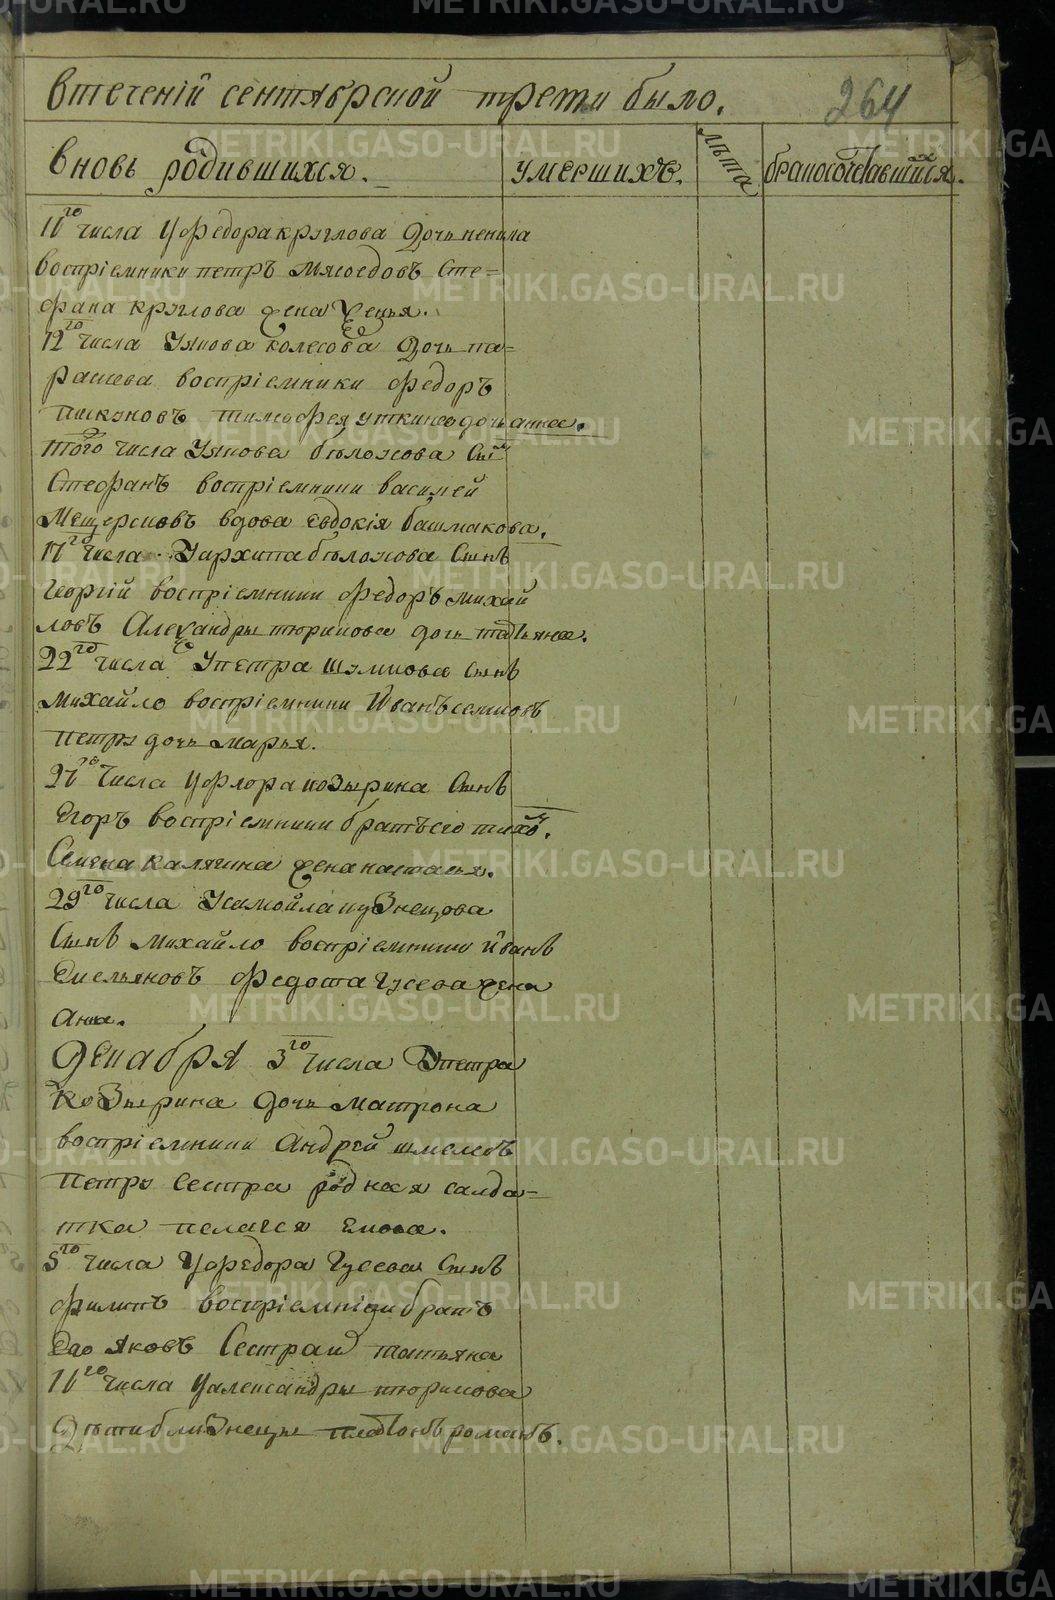 втеченій сентябрской трети было.
264
вновь родившихся.
умершихъ.
лѣта
бракосочетавшихся.
11го числа Уфедора круглова дочь ненила
воспріемники петръ мясоедовъ Сте=
фана круглова жена
12го числа Уякова колесова дочь па=
раскева воспріемники федоръ
пискуновъ тимофея уткина дочь анна.
того числа Уякова бѣлохова Сынъ
Стефанъ воспріемники василей
Мещерсковъ вдова евдокія башмакова.
17го числа Уархипа бѣлохова Сынъ
георгій воспріемники федоръ михай
ловъ Александры тюрикова дочь татьяна.
22го числа Упетра шумкова Сынъ
михайло воспріемники Иванъ семковъ
петра дочь марья.
27го числа Уфлора козырина Сынъ
Егоръ воспріемники братъ его тихо.
Семена калягина жена настасья.
29го числа Усамойла кузнецова
Сынъ михайло воспріемники иванъ
Емельяновъ федота гусева жена
анна.
декабря 3го числа Упетра
Козырина дочь матрона
воспріемники андрей шмелевъ
петра Сестра родная салда=
тка пелагея
5го числа Уфедора гусева Сынъ
филипъ воспріемники братъ
Его яковъ Сестра татьяна
11го числа Уалександры тюрикова
дѣти близнецы платонъ романъ.
METRIKI.GASO-URAL.RU